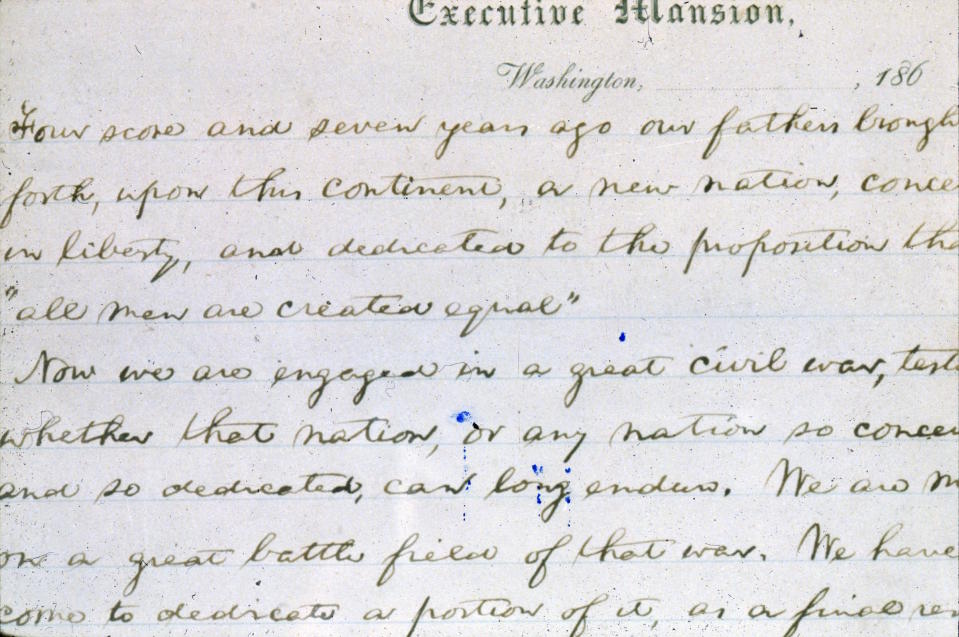 Executive Mansion,
Washington, , 186
Four score and seven years ago our fathers brough
forth, upon this continent, a new nation, concei
in liberty, and dedicated to the proposition tha
"all men are created equal"
Now we are engaged in a great civil war, testi
whether that nation, or any nation so concei
and so dedicated, can long endure. We are m
on a great battle field of that war. We have
come to dedicate a portion of it, as a final res